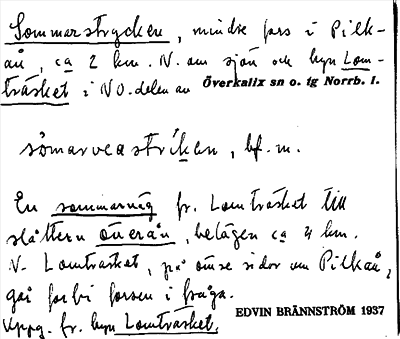 Sommarstrycken, mindre fors i Pilk-
ån, ca 2 km. N. om sjön och byn Lom-
träsket i NO. delen av Överkalix sn o. tg Norrb. l.
sömarvεastríkεn, bf. m.
En sommarväg fr. Lomträsket till
slåttern Ön­erån, belägen ca 4 km.
N. Lomträsket, på ömse sidor om Pilkån,
går förbi forsen i fråga.
Uppg. fr. byn Lomträsket.
EDVIN BRÄNNSTRÖM 1937